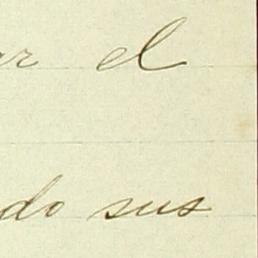 ar el
do sus